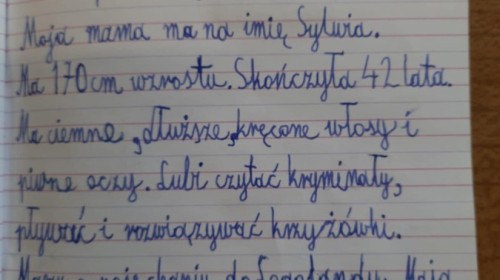 Moja mama ma na imię Sylwia.
Ma 170 cm wzrostu. Skończyła 42 lata.
Ma ciemne, dłuższe, kręcone włosy i
piwne oczy. Lubi czytać kryminały,
pływać i rozwiązywać krzyżówki.
do Moja